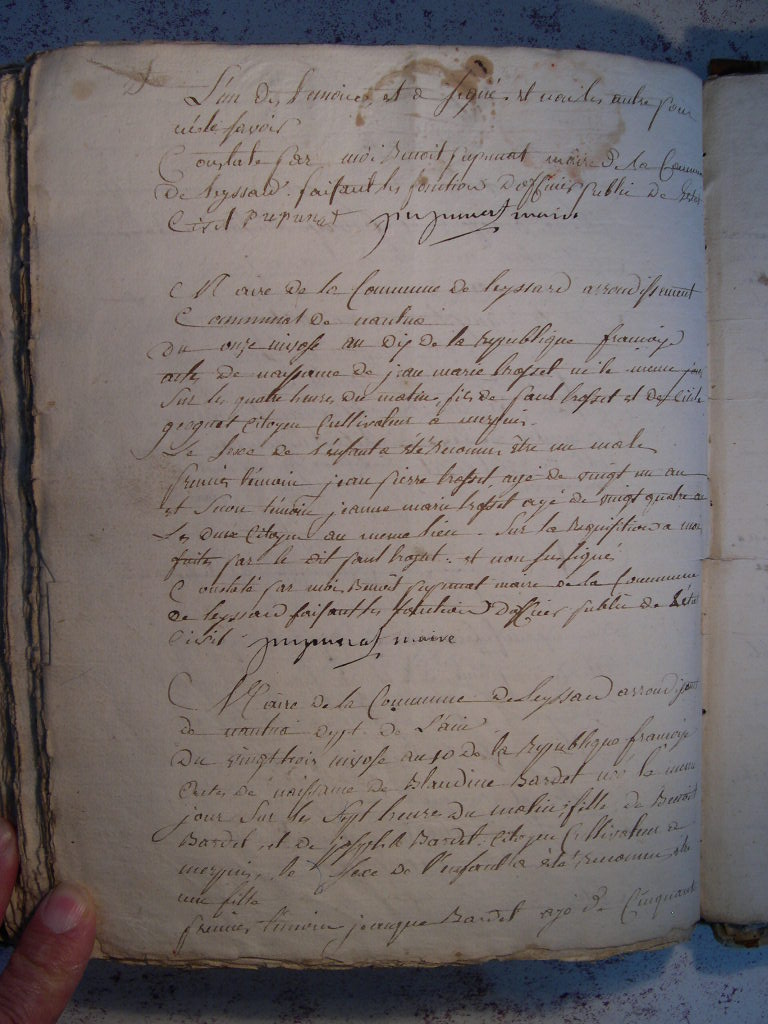 L'un des temoins et a signé. et non les autre pour
ne le savoir
Constaté par moi Benoit maire de la Commune
de leyssard. faisant les fonction D'officier public de l'etat
Civil maire
Maire de la Commune de leyssard arrondissement
Communal de nantua
Du onze nivose au dix de la republique française
acte de naissance de jean marie brosset né le meme jour
Sur les quatre heures du matin, fils de paul brosset et de
Citoyen Cultivateur a
Le sexe de l'enfant a été reconnu être un male
premier témoin jean pierre brosset, agé de vingt un an
et témoin jeanne marie brosset agé de vingt quatre an
Les deux Citoyen du meme lieu. Sur la requisition a moi
faite par le dit paul brosset. et non signé
Constaté par moi Benoit maire de la Commune
de leyssard faisant les fonction D'officier public de l'état
Civil maire
Maire de la Commune de leyssard arrondis
de nantua dept. de L'ain
Du vingt trois nivose an 10 de la republique française
acte de naissance de Blandine Bardet né le meme
jour Sur les Sept heure du matin fille de Benoit
Bardet, et de Bardet. Citoyen Cultivateur de
le Sexe de l'enfant a été reconnu être
une fille
premier témoin Bardet agé de Cinquante